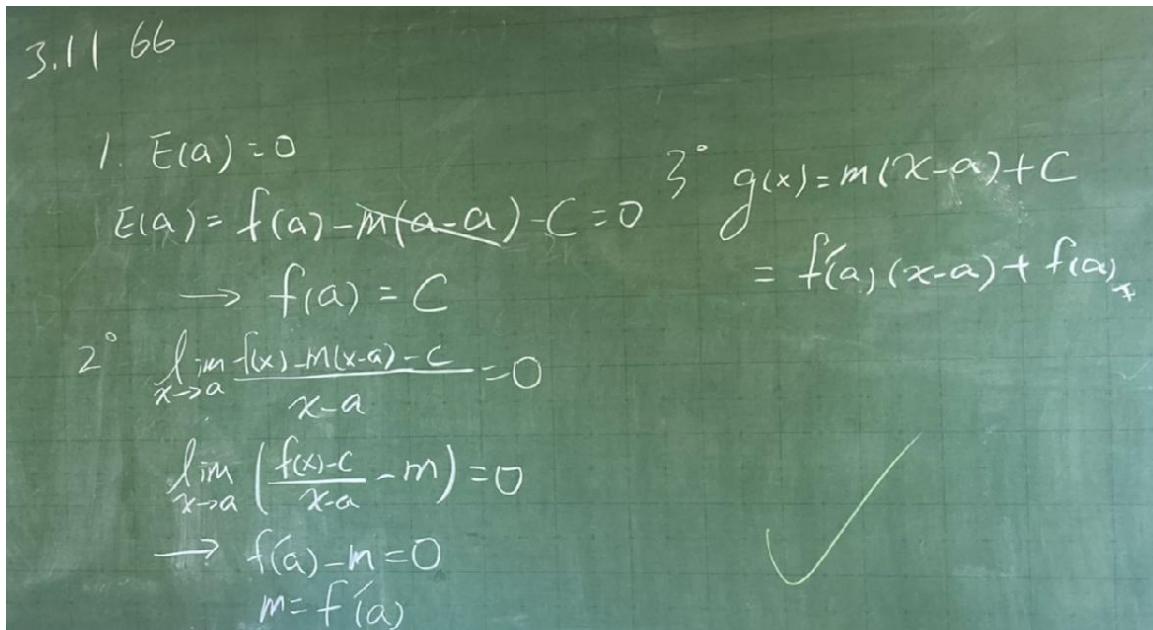 3.11 66
1. E(a)=0
E(a)=f(a)-m(a-a)-C=0
→ f(a)=C
2° lim x→a (f(x)-m(x-a)-C)/(x-a)=0
lim x→a (f(x)-C/x-a - m)=0
→ f'(a)-m=0
m=f'(a)
3° g(x)=m(x-a)+C
=f'(a)(x-a)+f(a)